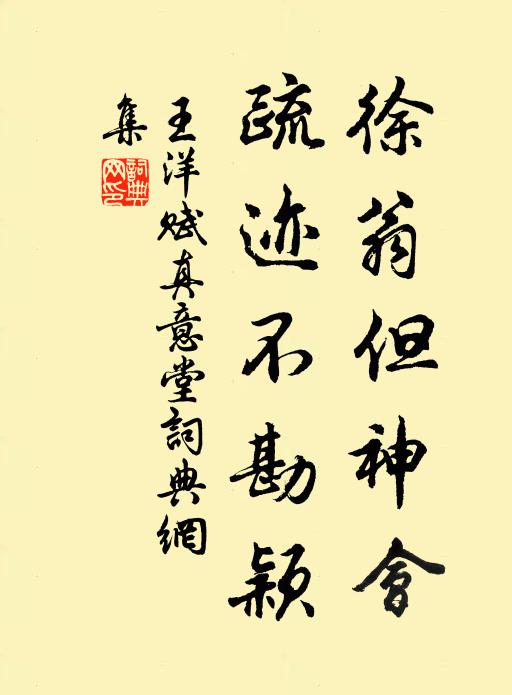 徐翁但神會
疏迹不勘颖
王洋赋真意堂詞典網
集
詞典网印